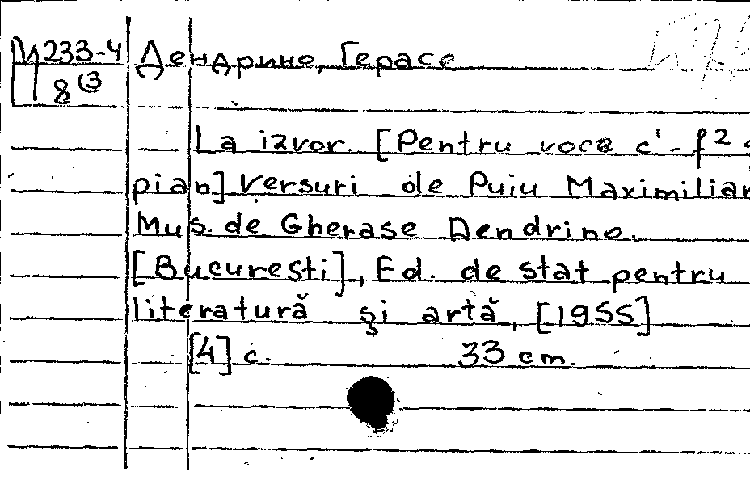 М233-4 Дендрино, Герасе
8(3
La izvor. [Pentru voce c'-f²
pian] Versuri de Puiu Maximilian
Mus. de Gherase Dendrino.
[Bucuresti], Ed. de stat pentru
literatură şi artă, [1955]
[4] c. 33 cm.